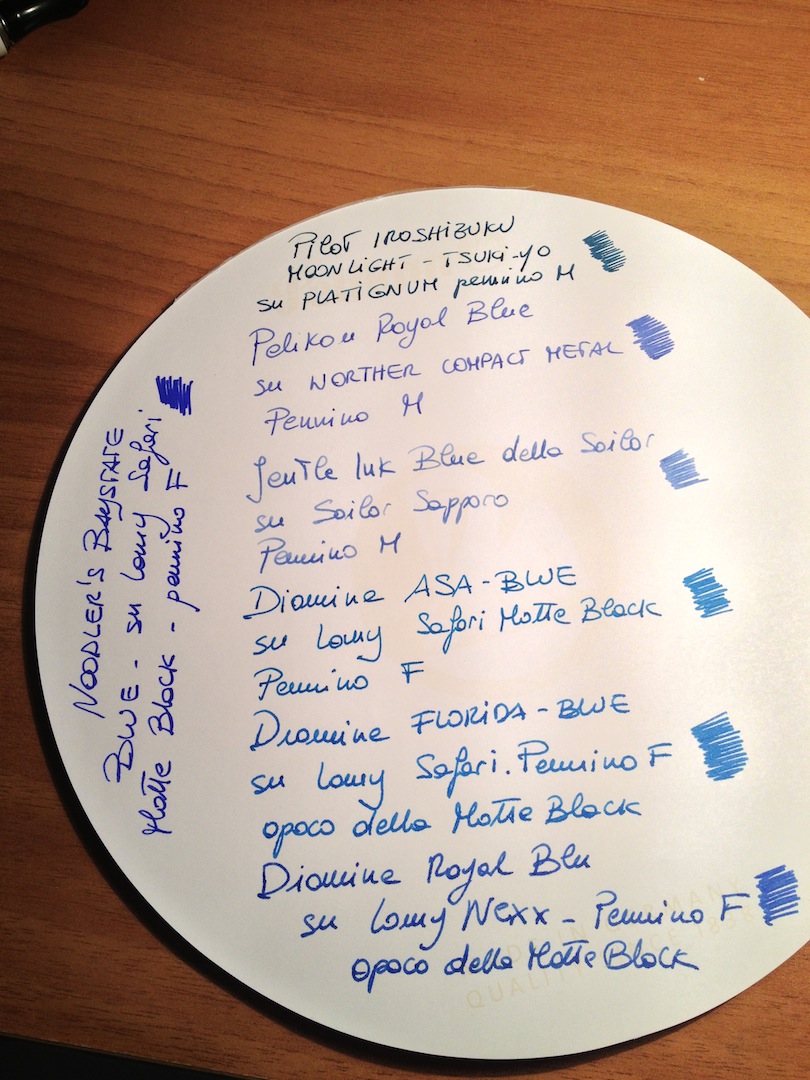 PILOT IROSHIZUKU
MOONLIGHT - TSUKI-YO
su PLATIGNUM pennino M
Pelikan Royal Blue
su NORTHER COMPACT METAL
Pennino M
Jentle Ink Blue della Sailor
su Sailor Sapporo
Pennino M
Diamine ASA-BLUE
su Lamy Safari Matte Black
Pennino F
Diamine FLORIDA-BLUE
su Lamy Safari. Pennino F
opaco della Matte Black
Diamine Royal Blu
su Lamy Nexx - Pennino F
opaco della Matte Black
NOODLER'S BAYSTATE
BLUE - su Lamy Safari
Matte Black - pennino F
GERMANY
QUALIT